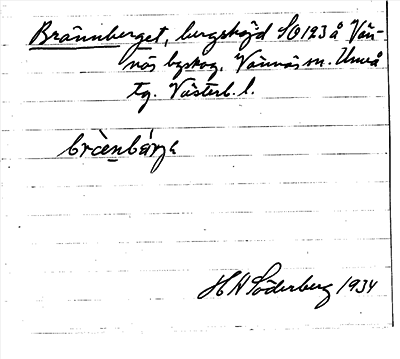 Brännberget, bergshöjd SO 123 å Vän-
näs byskog. Vännäs sn. Umeå
tg. Västerb. l.
brὲenbárjɛ
H H Söderberg 1934